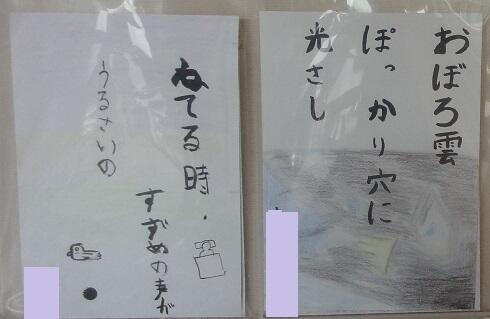 おぼろ雲
ぽっかり穴に
光さし
ねてる時.
すずめの声が
うるさいの